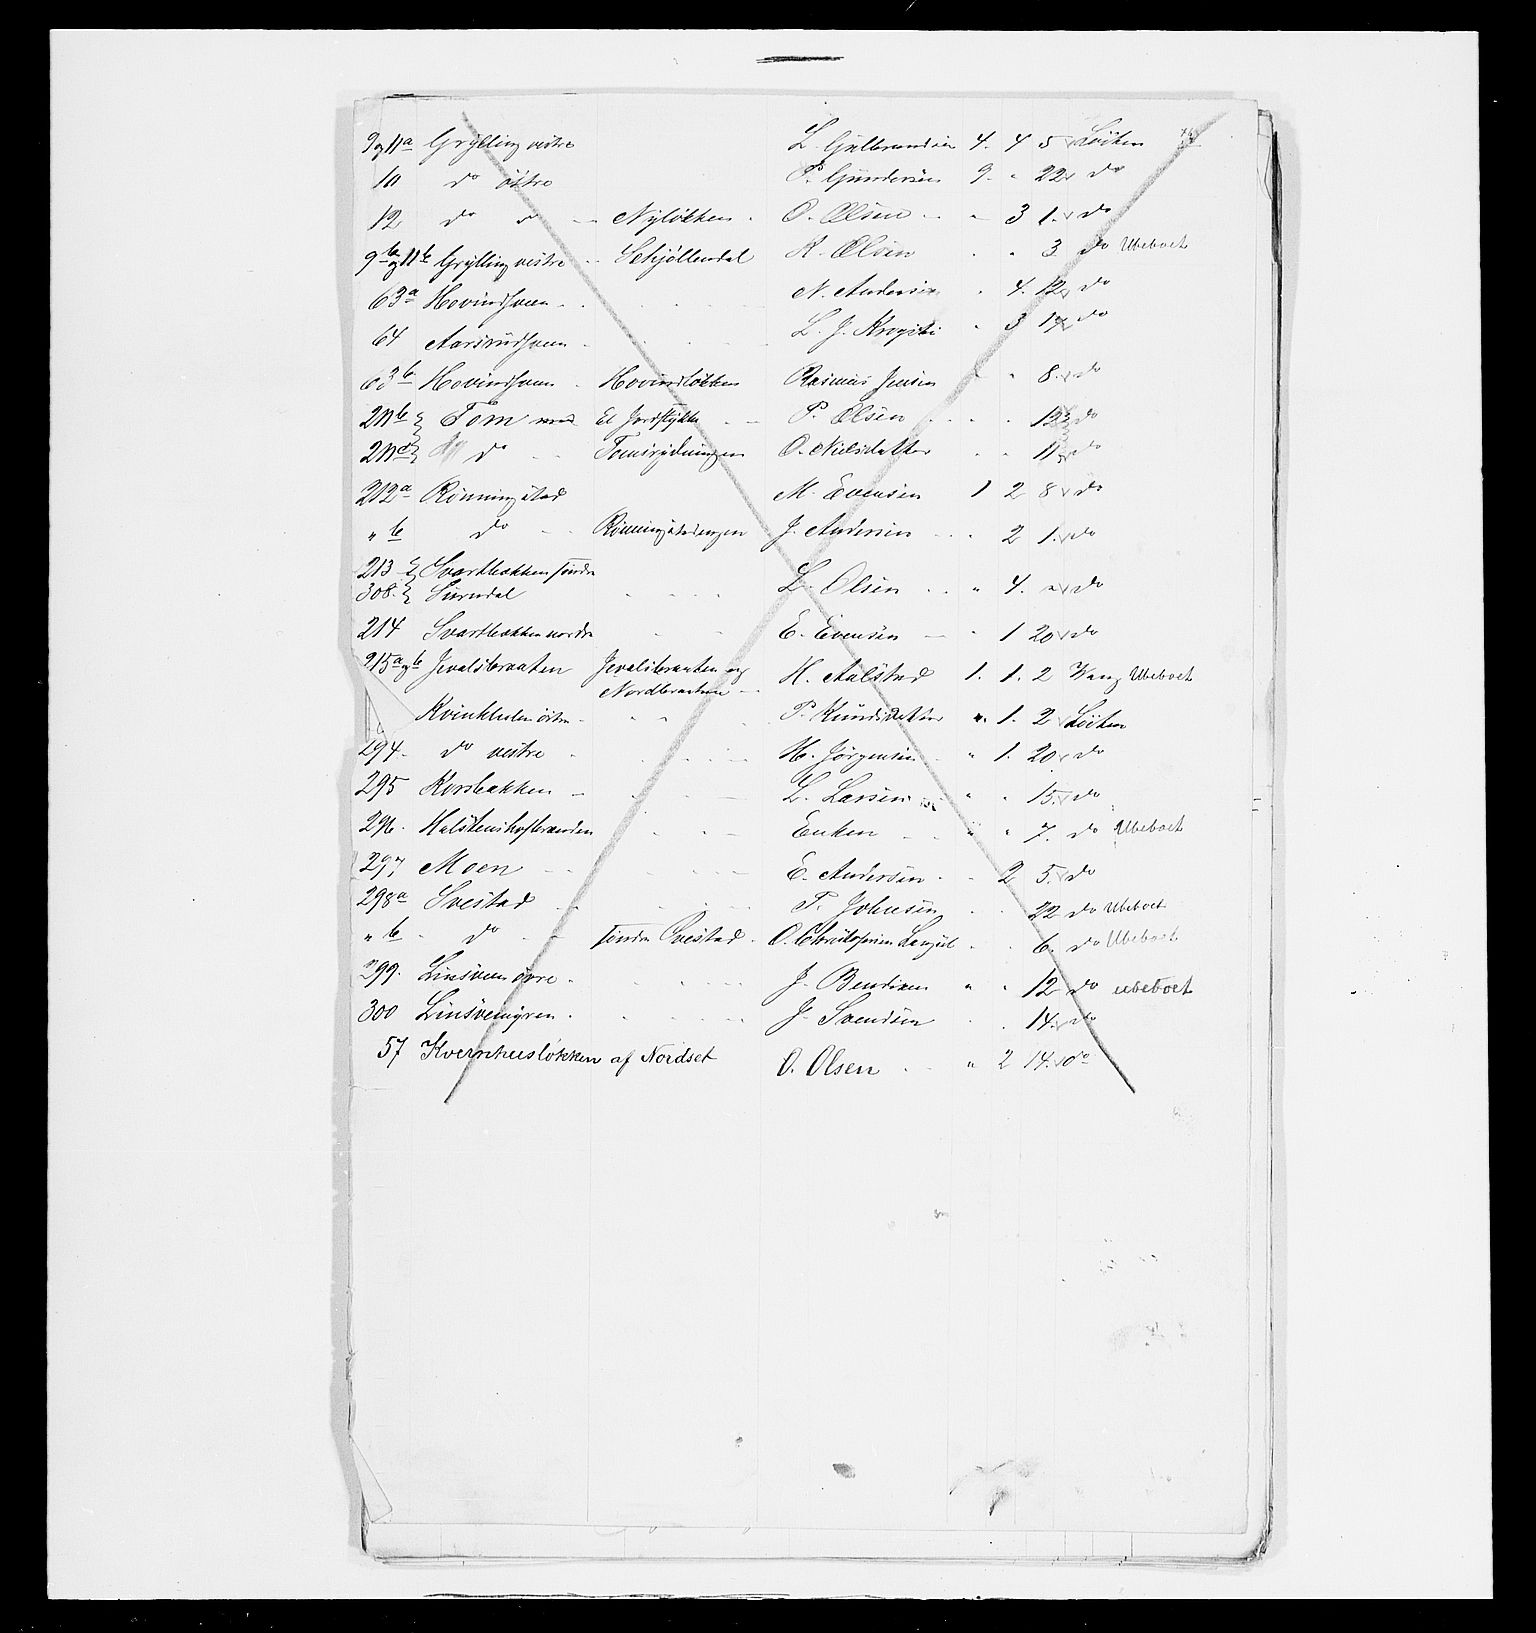 9 og 11a Grylling vestre L. Gulbrandsen 4. 4 5 Löiten
10 do östre P. Gundersen 9. " 22 do
12 do do Nylökken O. Olsen " 3 1. do
9b og 11b Grylling vestre Schjöllendal K. Olsen " " 3 do Ubeboet
63a Hovindsveen N. Andersen " 4. 12 do
64 Aarsrudsveen L. J. " 3 17 do
63b Hovindsveen Hovindlökken Rasmus Jensen " " 8. do
211b Tom Et Jordstykke P. Olsen 12 do
211c do O. Nielsdatter 11 do
212a Rönningstad M. Evensen 1 2 8 do
" b do Rönningstadengen J. Andersen 2 1. do
213 Svartbækken söndre
308. L. Olsen " 4. " do
214 Svartbækken nordre E. Evensen " 1 20 do
215a og b Jevalsbraaten Jevalsbraaten og H. Aalstad 1. 1. 2 Vang Ubeboet
Nordbraaten
östre P. " 1. 2 Löiten
294. do vestre H. Jörgensen " 1. 20 do
295 Korsbakken L. Larsen " " 15. do
296. Enken " " 7. do Ubeboet
297 Moen E. Andersen 2 5. do
298a Svestad T. Johnsen 22 do Ubeboet
" b do söndre Svestad O. Christophersen 6. do Ubeboet
299. Linsveen övre J. Bendixen " " 12 do ubeboet
300 J. Svendsen 14. do
57 Kvernhuslökken af Nordset O. Olsen " 2 14. do